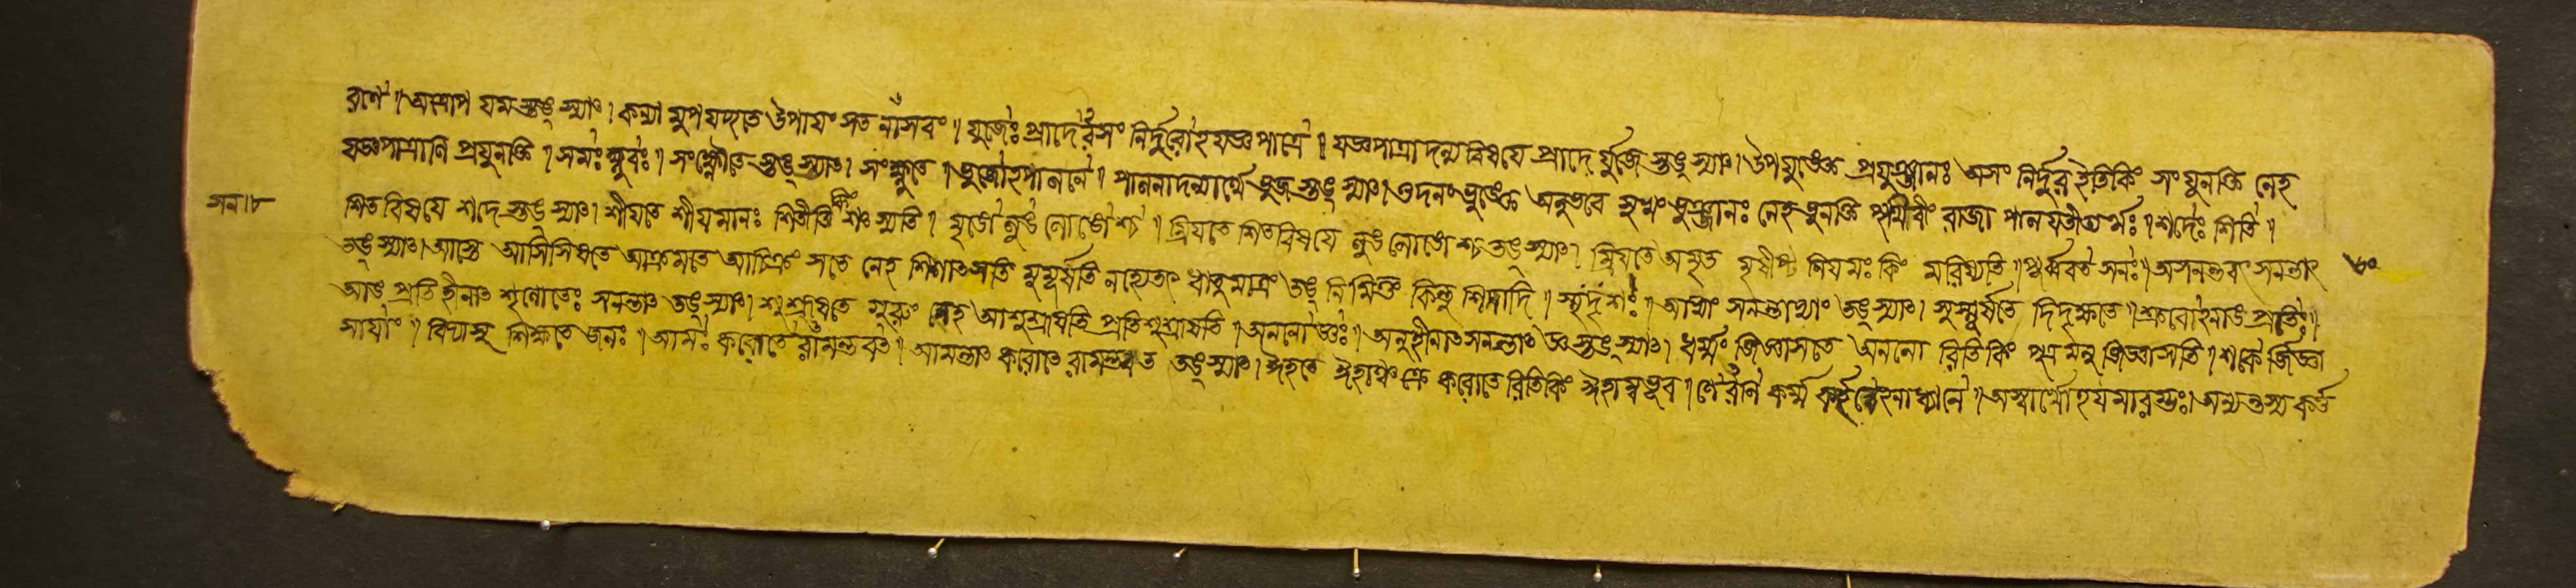 রণে॥ অস্মাপ যম স্তঙ্ স্যাৎ। কন্যা মুপযচ্ছতে উপাযং সত নাসবং॥ যুজেঃ প্রাদেরসং নির্দুরোঽযজ্ঞপাত্রে॥ যজ্ঞপাত্রাদন্য বিষযে প্রাদে র্যুজে স্তঙ্ স্যাৎ। উপযুঙেক্ত প্রযুঞ্জানঃ অসং নির্দুর ইতিকিং সংযুনক্তি নেহ
যজ্ঞপাত্রাণি প্রযুনক্তি। সমঃ ক্ষুবঃ॥ সংক্ষ্ণৌতে স্তঙ্ স্যাৎ। সংক্ষ্ণুতে। ভুজোঽপালনে॥ পালনাদন্যার্থে ভুজ স্তঙ্ স্যাৎ। ওদনং ভুঙেক্ত অনুভবে সুখং ভুঞ্জানঃ নেহ ভুনক্তি পৃথিবীং রাজা পালযতীত্যর্থঃ। শদেঃ শিতি।
সন।৮ শিত বিষযে শদে স্তঙ্ স্যাৎ। শীযতে শীযমানঃ শিতীতি কিং শৎস্যতি। মৃঙো লুঙ লোঙোশ্চ॥ ম্রিযতে শিতবিষযে লুঙ লোঙোশ্চ তঙ্ স্যাৎ। ম্রিযতে অমৃত মৃষীষ্ট নিযমঃ কিং মরিষ্যতি॥ পূর্ব্ববত সনঃ॥ অসনন্তবৎ সনন্তাৎ ৬০
তঙ্ স্যাৎ। আস্তে আসিসিষতে আক্রমতে আচিক্রং সতে নেহ শিশৎসতি মুমূর্ষতি নহ্যেতৎ ধাতুমাত্রং তঙ্ নিমিত্তং কিন্তু শিদাদি॥ স্মৃদৃশঃ॥ আভ্যাং সনন্তাভ্যাং তঙ্ স্যাৎ। সুস্মূর্ষতে দিদৃক্ষতে॥ শ্রুবোঽনাঙ প্রতেঃ॥
আঙ প্রতি হীনাৎ শৃণোতেঃ সনন্তাৎ তঙ্ স্যাৎ। শুশ্রূষতে গুরুং নেহ আশুশ্রূষতি প্রতিশুশ্রূষতি। অননোর্জ্ঞঃ॥ অনুহীনাৎ সনন্তাৎ জ্ঞ স্তঙ্ স্যাৎ। ধর্ম্মং জিজ্ঞাসতে অননো রিতিকিং পুত্র মনু জিজ্ঞাসতি। শকে র্জিজ্ঞা
সাযাং॥ বিদ্যাসু শিক্ষতে জনঃ॥ আমঃ করোতে রামন্তবত॥ আমন্তাৎ করোতে রামন্তবত তঙ্ স্যাৎ। ঈহতে ঈহাঞ্চক্রে করোতে রিতিকিং ঈহাম্বভূব। ণে রণি কর্ম্ম কর্ত্তৃকেঽনাধ্যানে॥ অস্যার্থোঽযমারম্ভঃ। অণ্যন্তস্য কর্ত্ত